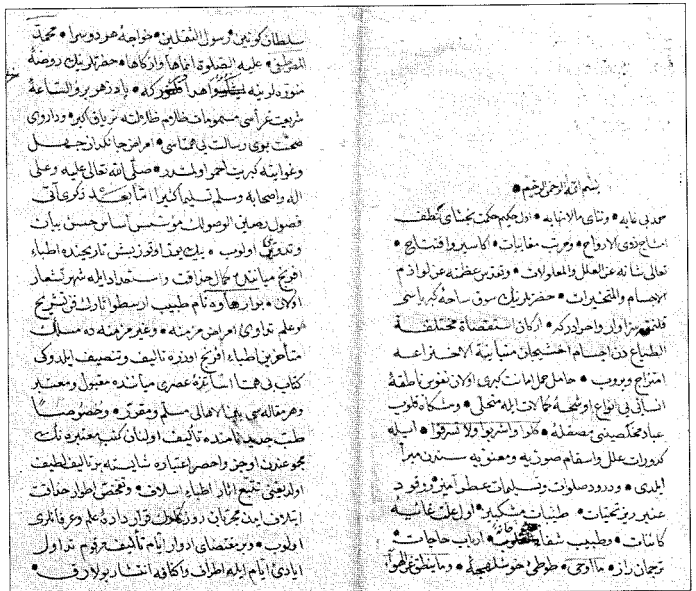 بسم الله الرحمن الرحيم
حمد بی غایه وثنای مالانهایه اول حکیم حکمت بخشای نطف
امشاج ذوی الارواح ومرتب مغایبات اکاسیر وافتتاح
تعالی شانه عن العلل والمعلولات وتقدس عظمته عن لوازم
الاجسام والمتحیزات حضرتلرینك سوق ساحهٔ کبریاسی
قلنمق سزاوار واحرادرکه ارکان استقصاة مختلفة
الطباعدن اجسام اخشیجان متباینة الاختراعه
امتزاج ویروب حامل حمل امانت کبری اولان نفوس ناطقهٔ
انسانی بی انواع کمالات ایله متحلی ومشکاة قلوب
عباد مخلصینی تصقله کلوا واشربوا ولا تسرفوا ایله
کدورات علل واسقام صوریه ومعنویه سندن مبرا
ایلدی ودرود صلوات وتسلیمات عطر آمیز
عنبر ریز تحیات طیبات مشکبیز اول علت غائیهٔ
کائنات وطبیب ارباب حاجات
ترجمان راز ما اوحی طوطی خوش لهجهٔ وما ینطق عن الهوا
سلطان کونین ورسول الثقلین خواجهٔ هر دوسرا محمد
المصطفی علیه الصلوة انماها وازکاها حضرتلرینك روضهٔ
منوره لرینه اهدا که پادزهر برؤ الساعهٔ
شریعت غراسی مسمومان ظلمات تریاق اکبر وداروی
صحت بوی رسالت بی همتاسی امراض جانکداز جهل
وغوایته کبریت احمر اولمشدر صلی الله تعالی علیه وعلی
اله واصحابه وسلم تسلیما کثیرا اما بعد ذکری آتی
فصول رهین الوصولك مؤسس اساس حسن بیان
وتدوینی اولوب بیك یوز اوتوز بش تاریخنده اطباء
افرنج میاننده کمال حذاقت واستعداد ایله شهرتشعار
اولان نام طبیب ارسطو اثارك فن تشریح
وعلم تداوی امراض مزمنه وغیر مزمنه ده مسلك
متأخرین اطباء افرنج اوزره تالیف وتصنیف ایلدوکی
کتاب بی همتا اساتذهٔ عصری میاننده مقبول ومعتبر
وهر مقاله سی بین الاهالی مسلم ومقرر وخصوصا
طب جدید نامنده تألیف اولنان کتب معتبره نك
مجموعندن اوجز واخصر اعتباره شایسته بر تالیف لطیف
اولدیغنی تتبع اثار اطباء اسلاف وتفحص اطوار حذاقت
ایتلاف ایدن مجربان روزکارك قرار دادهٔ علم وعرفانلری
اولوب وبر مقتضای ادوار ایام تألیف مرقوم تداول
ایادئ ایام ایله اطراف واکنافه انتشار بولارق